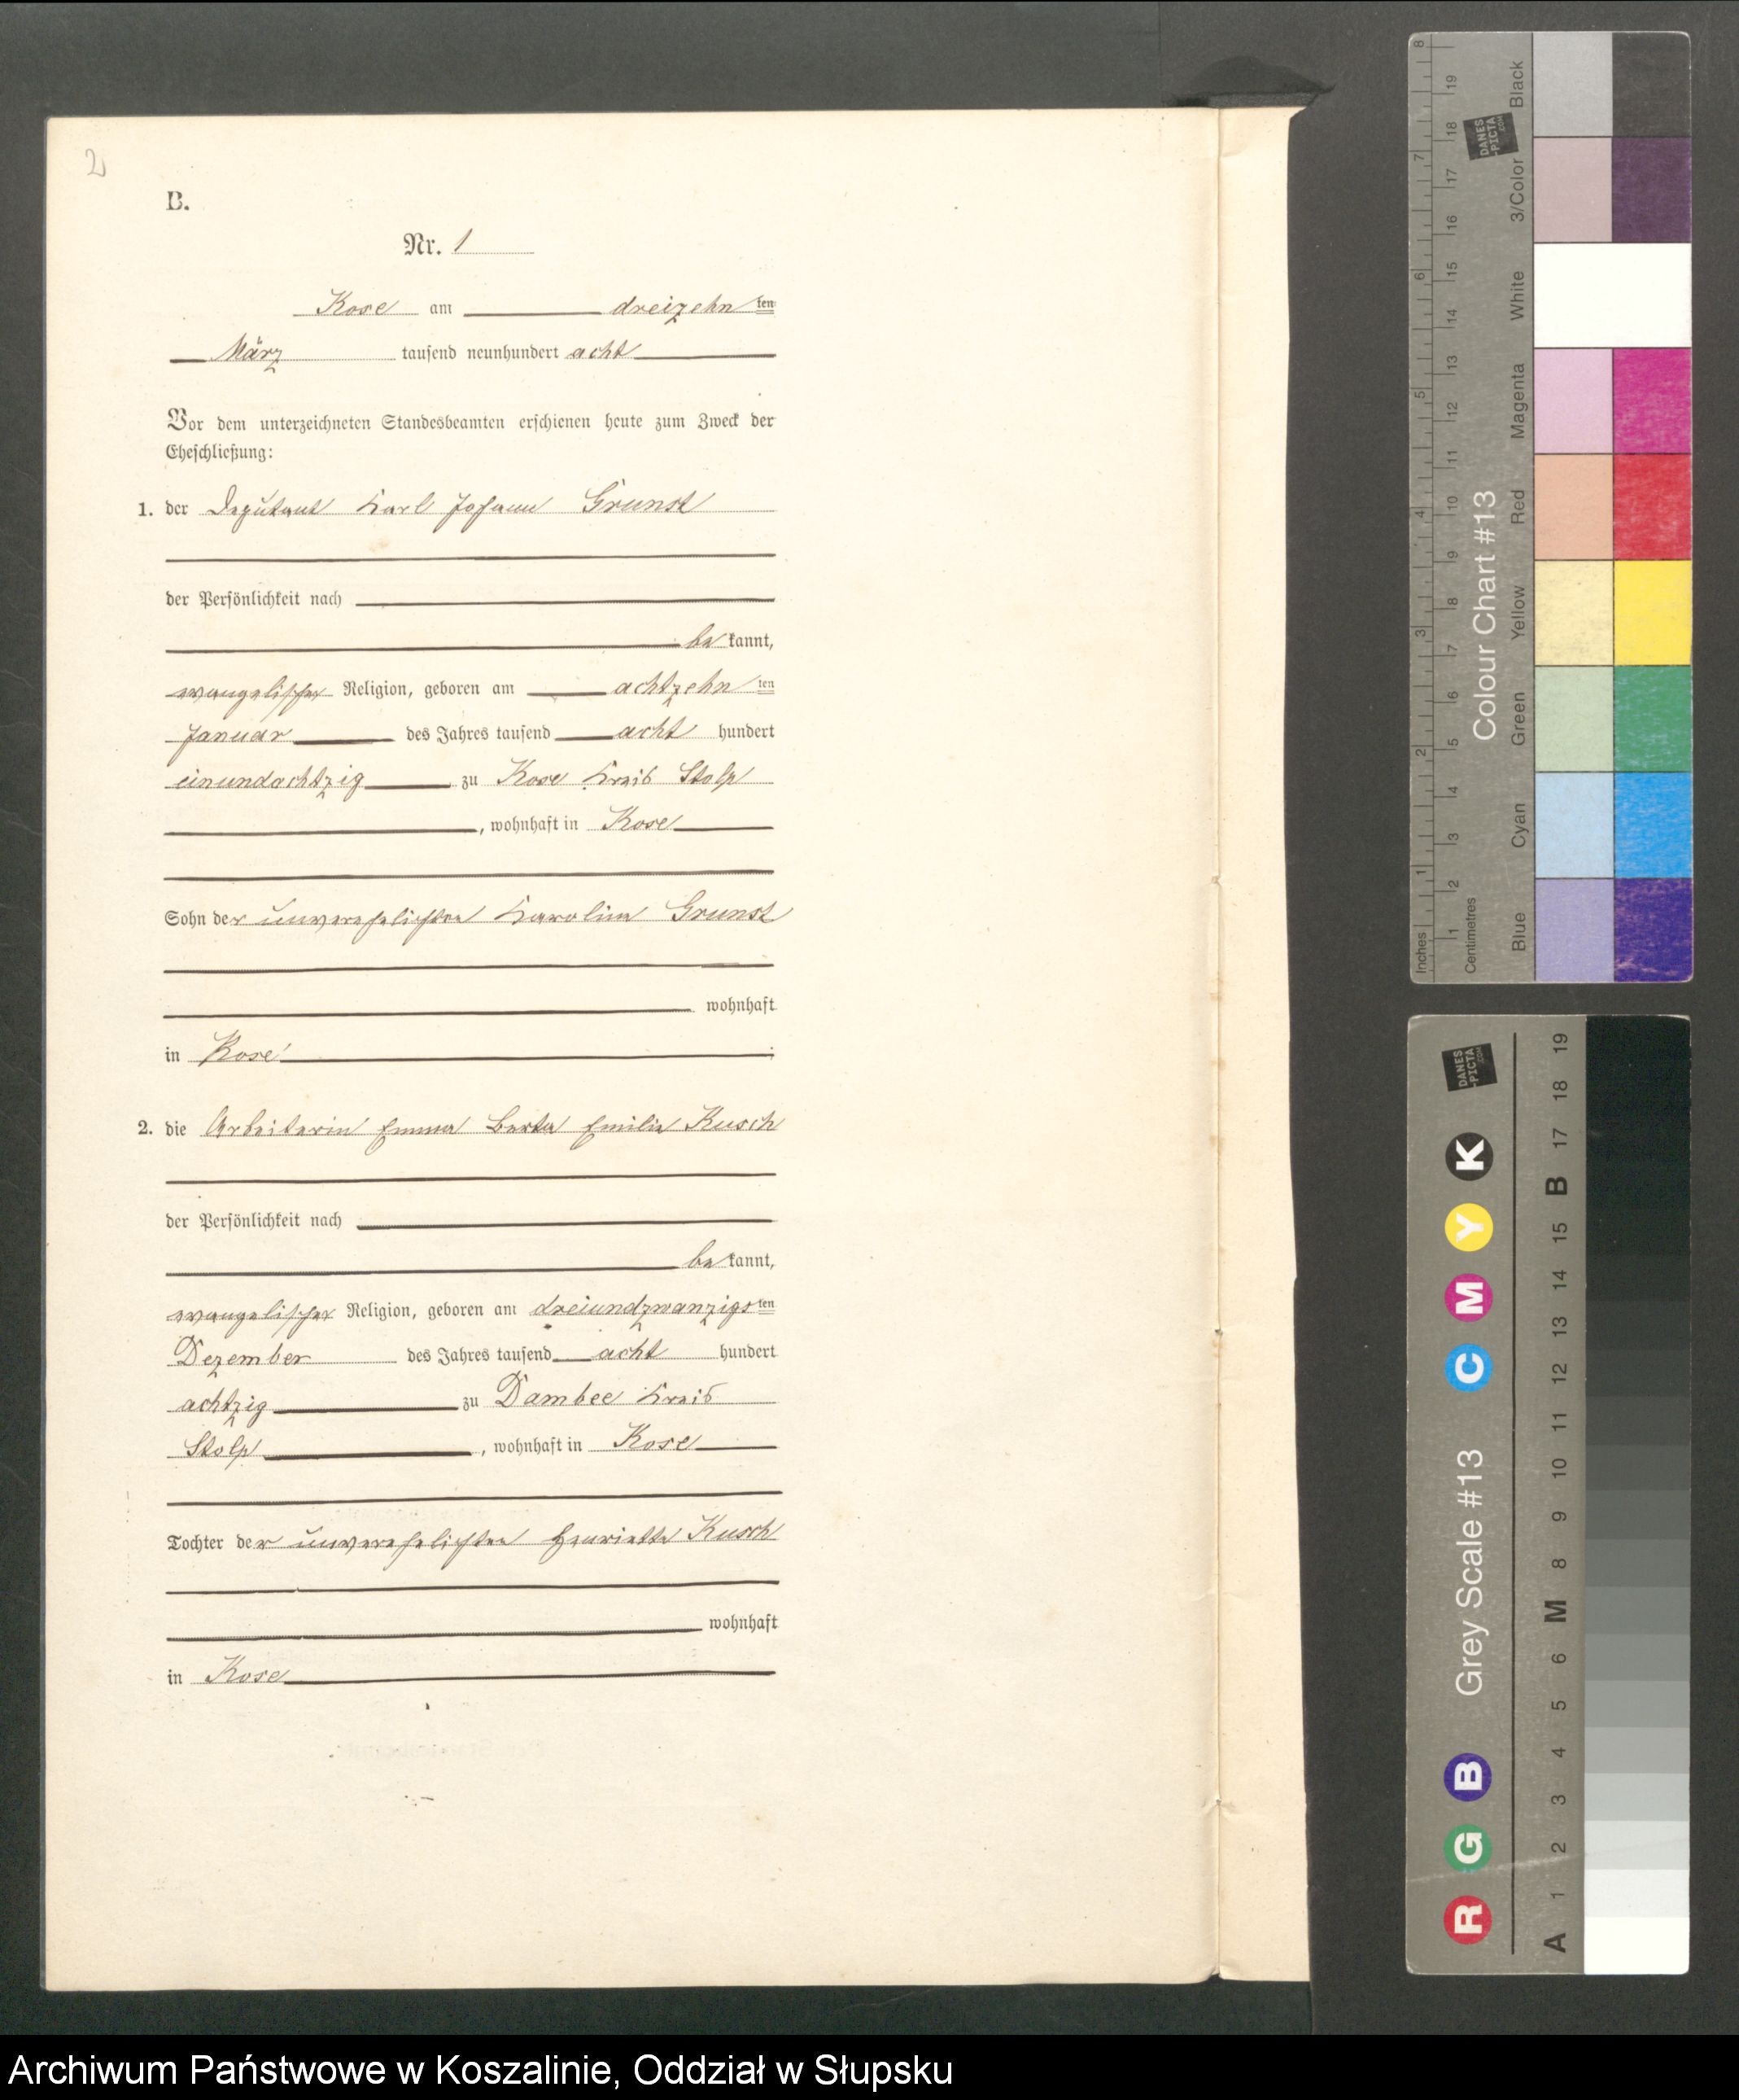 2
B.
Nr. 1
Kose am dreizehnten
März tausend neunhundert acht
Vor dem unterzeichneten Standesbeamten erschienen heute zum Zweck der
Eheschließung:
1. der Deputant Karl Johann Grunst
der Persönlichkeit nach
bekannt,
evangelischer Religion, geboren am achtzehnten
Januar des Jahres tausend acht hundert
einundachtzig zu Kose Kreis Stolp
, wohnhaft in Kose
Sohn der unverehelichten Karoline Grunst
wohnhaft
in Kose
2. die Arbeiterin Emma Berta Emilie Kusch
der Persönlichkeit nach
bekannt,
evangelischer Religion, geboren am dreiundzwanzigsten
Dezember des Jahres tausend acht hundert
achtzig zu Dambee Kreis
Stolp, wohnhaft in Kose
Tochter der unverehelichten Henriette Kusch
wohnhaft
in Kose
Inches 1 2 3 4 5 6 7 8
Centimetres 1 2 3 4 5 6 7 8 9 10 11 12 13 14 15 16 17 18 19
DANES-PICTA.COM
Colour Chart #13
Blue Cyan Green Yellow Red Magenta White 3/Color Black
R G B Grey Scale #13 C M Y K
DANES-PICTA.COM
A 1 2 3 4 5 6 M 8 9 10 11 12 13 14 15 B 17 18 19
Archiwum Państwowe w Koszalinie, Oddział w Słupsku